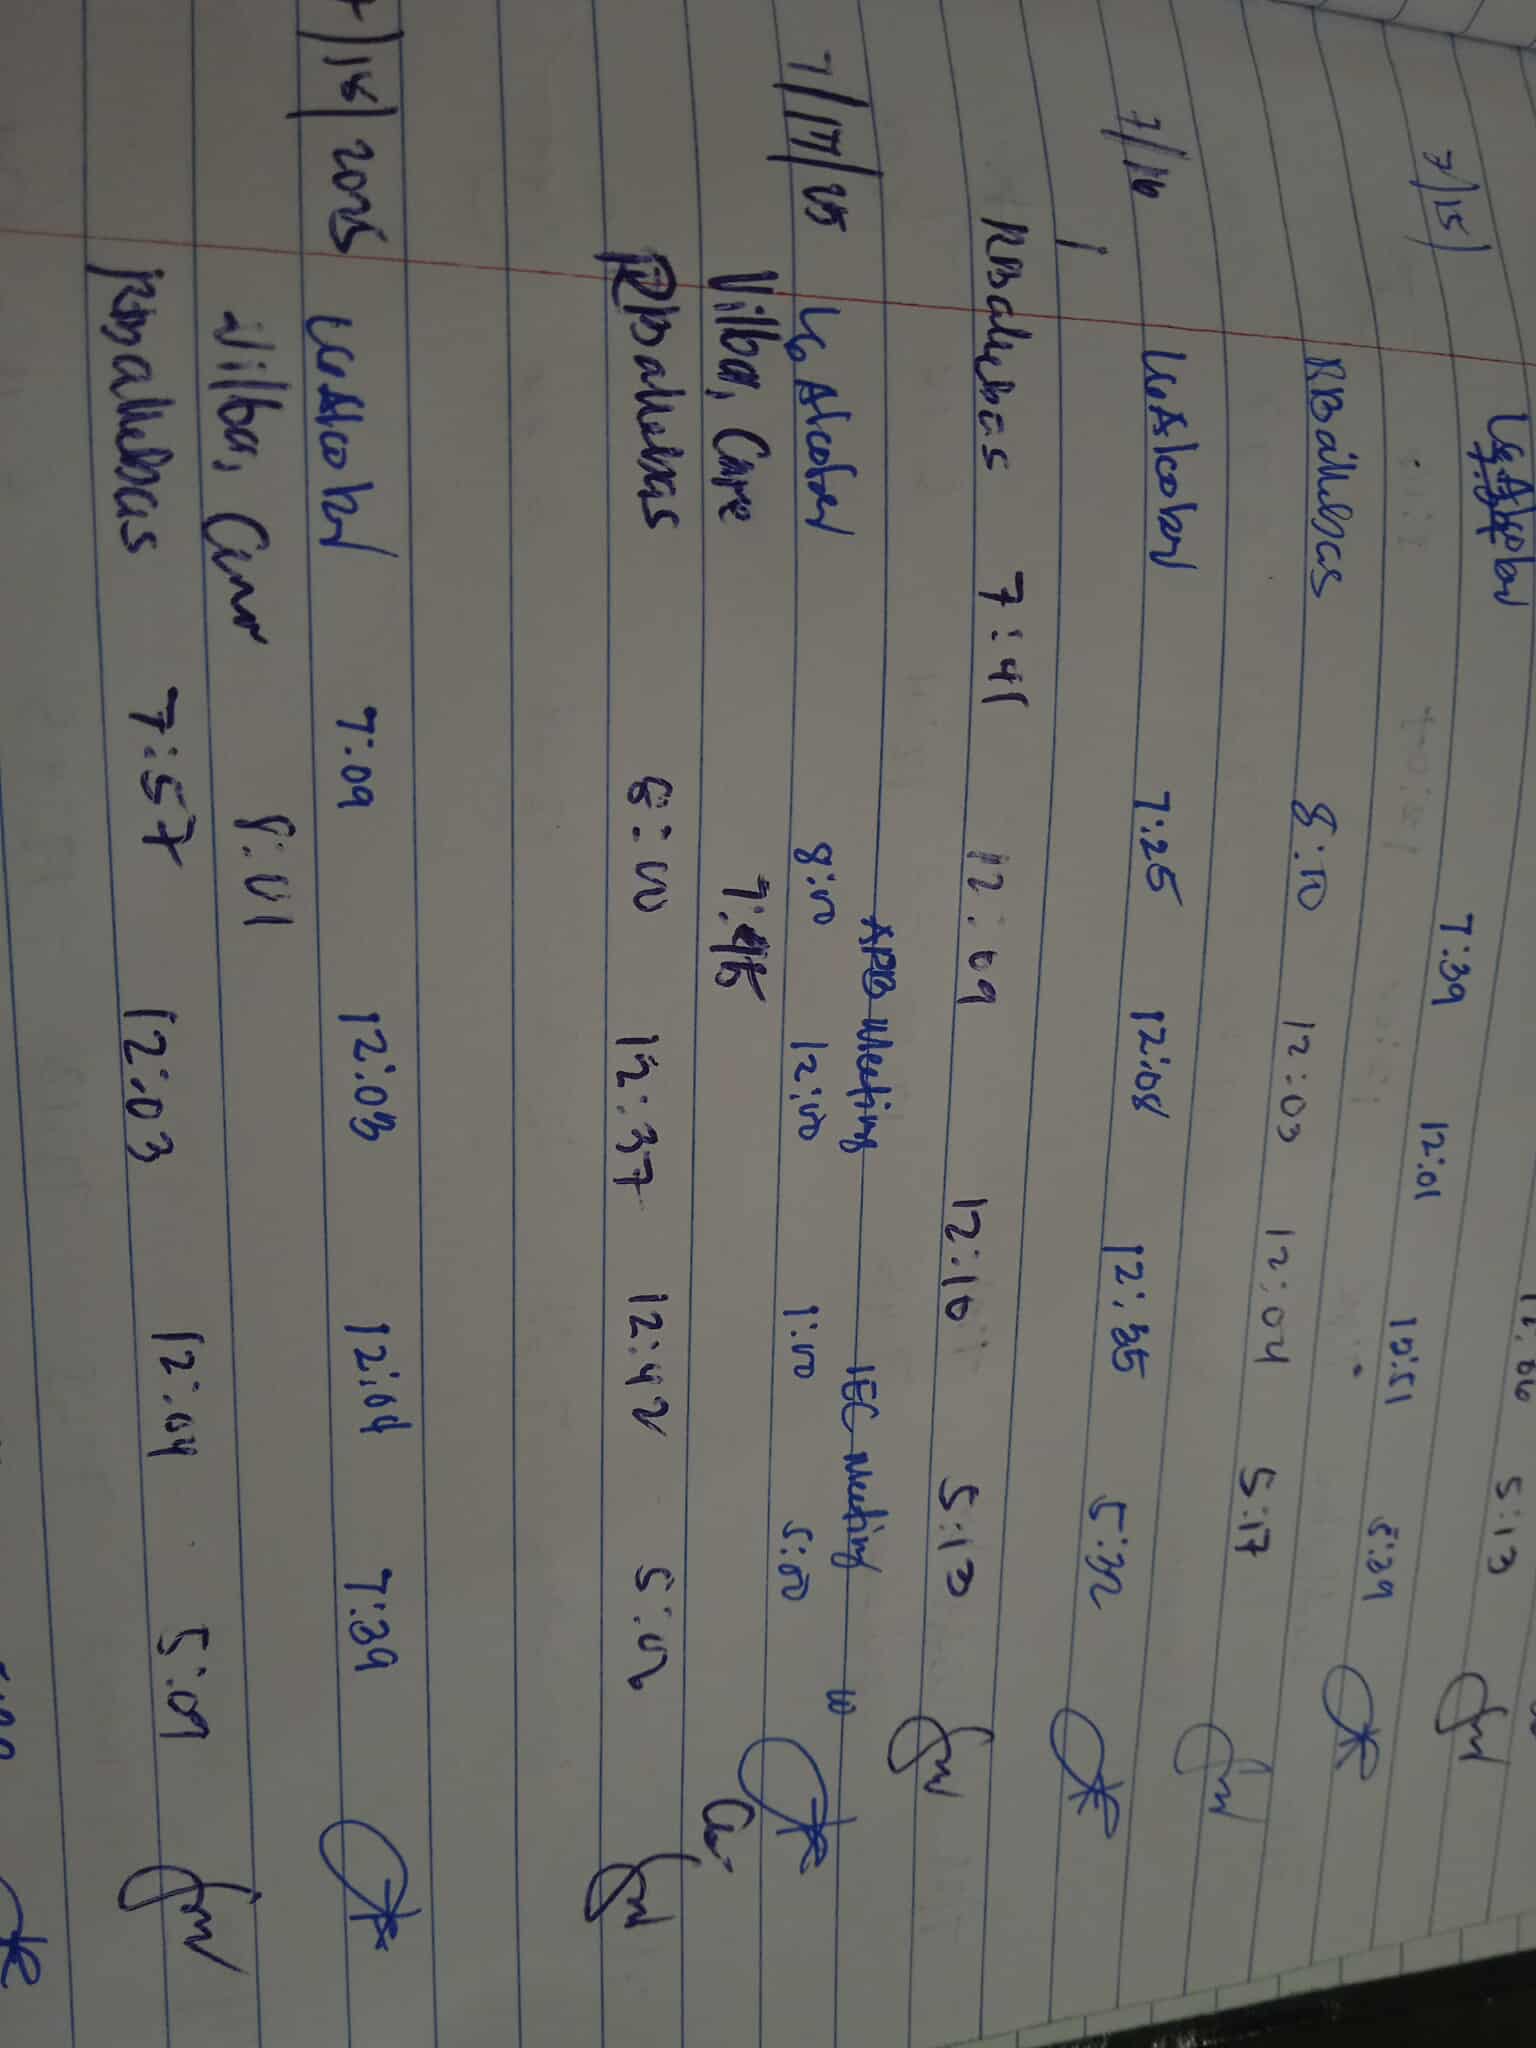 5:13
7/15/ LGAlcober 7:39 12:01 12:51 5:39
RBallebas 8:10 12:03 12:04 5:17
7/16 LGAlcober 7:25 12:08 12:35 5:32
RBallebas 7:41 12:09 12:10 5:13
APB Meeting IEC Meeting
7/17/25 LG Alcober 8:00 12:00 1:00 5:00
Vilbar, 7:45
RBallebas 8:00 12:37 12:42 5:02
7/18/2025 LGAlcober 7:09 12:03 12:04 7:39
Vilbar, 8:01
RBallebas 7:57 12:03 12:04 5:09